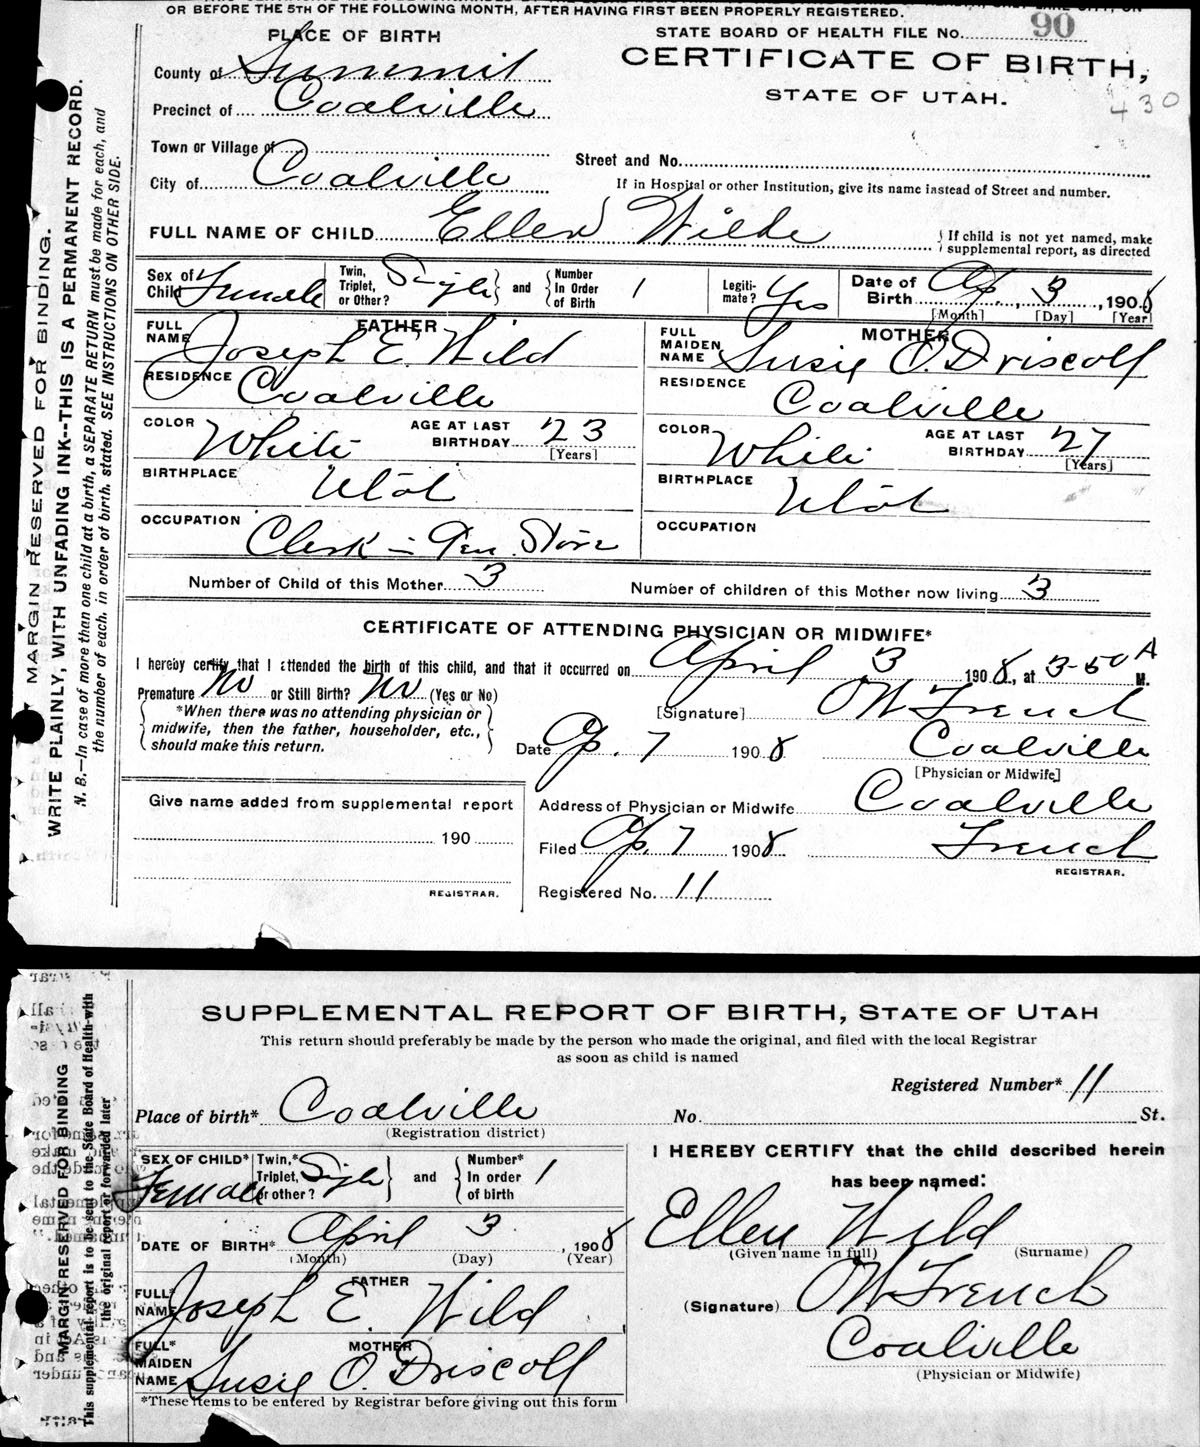 OR BEFORE THE 5TH OF THE FOLLOWING MONTH, AFTER HAVING FIRST BEEN PROPERLY REGISTERED.
PLACE OF BIRTH
STATE BOARD OF HEALTH FILE No. 90
CERTIFICATE OF BIRTH,
STATE OF UTAH.
430
County of Summit
Precinct of Coalville
Town or Village of
City of Coalville
Street and No.
If in Hospital or other Institution, give its name instead of Street and number.
FULL NAME OF CHILD Ellen Wilde
If child is not yet named, make supplemental report, as directed
Sex of Child Female
Twin, Triplet, or Other? Single and Number In Order of Birth 1
Legitimate? Yes
Date of Birth Ap 3, 1908
[Month] [Day] [Year]
FATHER
FULL NAME Joseph E. Wild
RESIDENCE Coalville
COLOR White AGE AT LAST BIRTHDAY 23
[Years]
BIRTHPLACE Utah
OCCUPATION Clerk in Gen. Store
MOTHER
FULL MAIDEN NAME Susie O. Driscoll
RESIDENCE Coalville
COLOR White AGE AT LAST BIRTHDAY 27
[Years]
BIRTHPLACE Utah
OCCUPATION
Number of Child of this Mother 3
Number of children of this Mother now living 3
CERTIFICATE OF ATTENDING PHYSICIAN OR MIDWIFE*
I hereby certify that I attended the birth of this child, and that it occurred on April 3 1908, at 3-50 A M.
Premature No or Still Birth? No (Yes or No)
*When there was no attending physician or
midwife, then the father, householder, etc.,
should make this return.
[Signature] O W French
Date Ap. 7 1908 Coalville
[Physician or Midwife]
Give name added from supplemental report
190
REGISTRAR.
Address of Physician or Midwife Coalville
Filed Ap. 7 1908 French
REGISTRAR.
Registered No. 11
MARGIN RESERVED FOR BINDING.
WRITE PLAINLY, WITH UNFADING INK--THIS IS A PERMANENT RECORD.
N. B.—In case of more than one child at a birth, a SEPARATE RETURN must be made for each, and
the number of each, in order of birth, stated. SEE INSTRUCTIONS ON OTHER SIDE.
SUPPLEMENTAL REPORT OF BIRTH, STATE OF UTAH
This return should preferably be made by the person who made the original, and filed with the local Registrar
as soon as child is named
Registered Number* 11
Place of birth* Coalville No. St.
(Registration district)
SEX OF CHILD* Female
Twin,* Triplet, or other? Single and Number* In order of birth 1
DATE OF BIRTH* April 3, 1908
(Month) (Day) (Year)
FATHER
FULL* NAME Joseph E. Wild
MOTHER
FULL* MAIDEN NAME Susie O. Driscoll
*These items to be entered by Registrar before giving out this form
I HEREBY CERTIFY that the child described herein
has been named:
Ellen Wild
(Given name in full) (Surname)
(Signature) O W French
Coalville
(Physician or Midwife)
MARGIN RESERVED FOR BINDING
This supplemental report is to be sent to the State Board of Health with
the original report or forwarded later